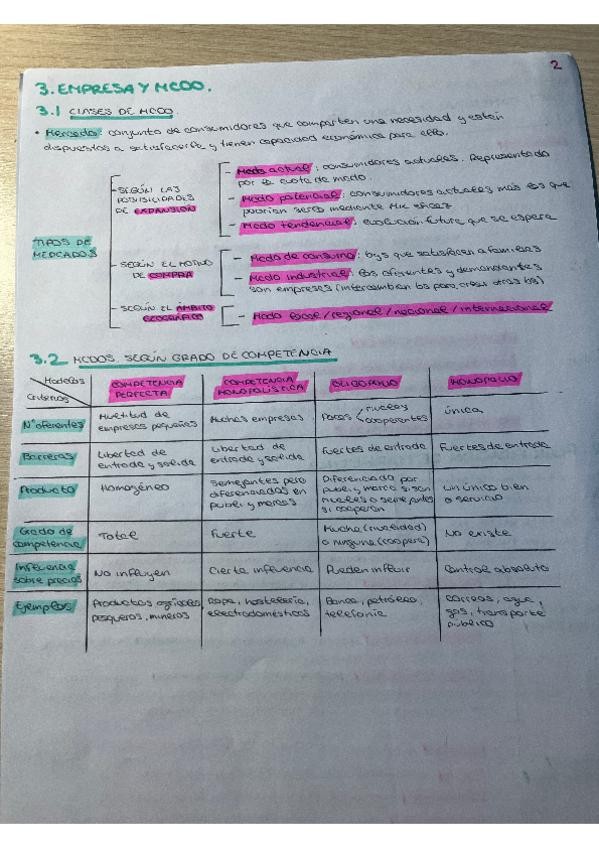 2
3. EMPRESA Y MCDO.
3.1 CLASES DE MCDO.
• Mercado: conjunto de consumidores que comparten una necesidad y están
dispuestos a satisfacerla y tienen capacidad económica para ello.
TIPOS DE MERCADOS
SEGÚN LAS POSIBILIDADES DE EXPANSIÓN
- Mcdo actual: consumidores actuales. Representado
por la cuota de mcdo.
- Mcdo potencial: consumidores actuales más los que
podrían serlo mediante MK eficaz
- Mcdo tendencial: evolución futura que se espera
- SEGÚN EL MOTIVO DE COMPRA
- Mcdo de consumo: bys que satisfacen a familias
- Mcdo industrial: los oferentes y demandantes
son empresas (intercambian bs para crear otros bs)
- SEGÚN EL ÁMBITO GEOGRÁFICO
- Mcdo local / regional / nacional / internacional
3.2 MCDOS SEGÚN GRADO DE COMPETENCIA
Modelos
Criterios
COMPETENCIA PERFECTA
COMPETENCIA MONOPOLÍSTICA
OLIGOPOLIO
MONOPOLIO
Nº oferentes
Multitud de empresas pequeñas
Muchas empresas
Pocas rivales y cooperantes
única
Barreras
Libertad de entrada y salida
Libertad de entrada y salida
Fuertes de entrada
Fuertes de entrada
Producto
Homogéneo
Semejantes pero diferenciados en publi y marcas
Diferenciado por publi y marca si son rivales o semejantes si cooperan
Un único bien o servicio
Grado de competencia
Total
Fuerte
Mucha (rivalidad) o ninguna (coopera)
No existe
Influencia sobre precios
No influyen
Cierta influencia
Pueden influir
Control absoluto
Ejemplos
Productos agrícolas, pesqueros, mineros
Ropa, hostelería, electrodomésticos
Banca, petróleo, telefonía
Correos, agua, gas, transporte público